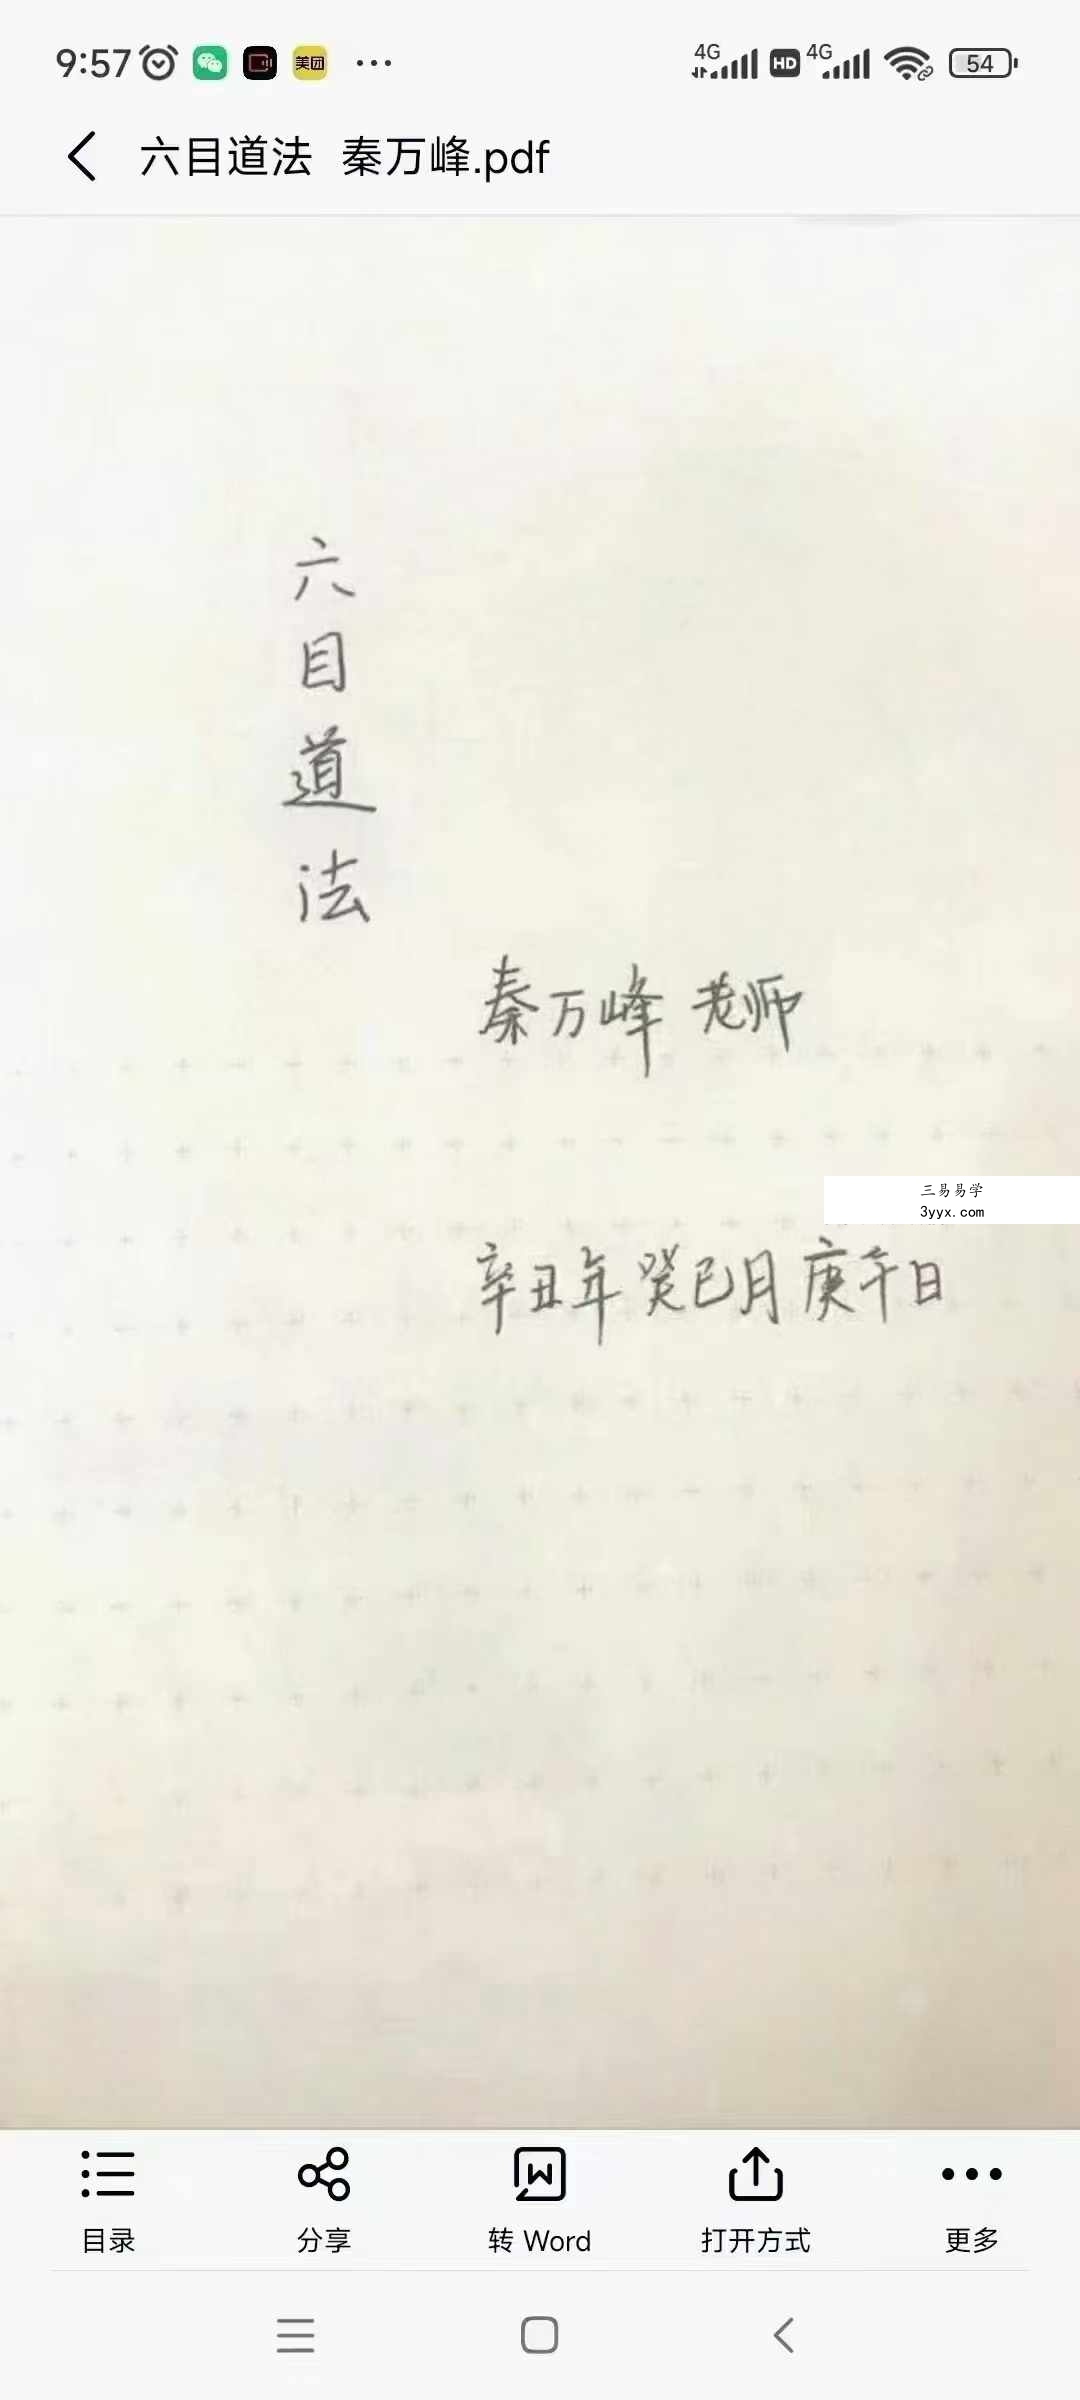 9:57 美团 ··· 4G HD 4G 54
六目道法 秦万峰.pdf
六目道法
秦万峰 老师
三易易学
3yyx.com
辛丑年 癸巳月 庚午日
目录 分享 转 Word 打开方式 更多